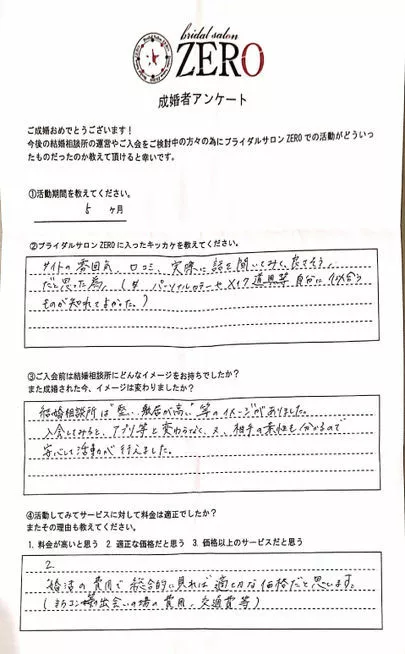 bridal salon
ZERO
成婚者アンケート
ご成婚おめでとうございます！
今後の結婚相談所の運営やご入会をご検討中の方々の為にブライダルサロンZEROでの活動がどういっ
たものだったのか教えて頂けると幸いです。
①活動期間を教えてください。
5 ヶ月
②ブライダルサロンZEROに入ったキッカケを教えてください。
サイトの雰囲気、口コミ、実際に話を聞いてみて良さそう
だと思った為。(又、パーソナルカラーやメイク道具等 自分に似合う
ものが知れてよかった。)
③ご入会前は結婚相談所にどんなイメージをお持ちでしたか？
また成婚された今、イメージは変わりましたか？
結婚相談所は"堅い、敷居が高い"等のイメージがありました。
入会してみると、アプリ等と変わらなく、又、相手の素性も分かるので
安心して活動が行えました。
④活動してみてサービスに対して料金は適正でしたか？
またその理由も教えてください。
1. 料金が高いと思う 2. 適正な価格だと思う 3. 価格以上のサービスだと思う
2
婚活の費用で総合的に見れば適切な価格だと思います。
(街コン等の出会いの場の費用、交通費等)